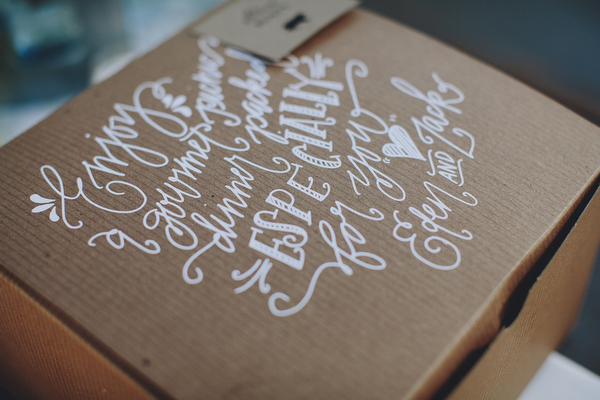 Enjoy
a gourmet
dinner packed
ESPECIALLY
for you
Eden AND Jack